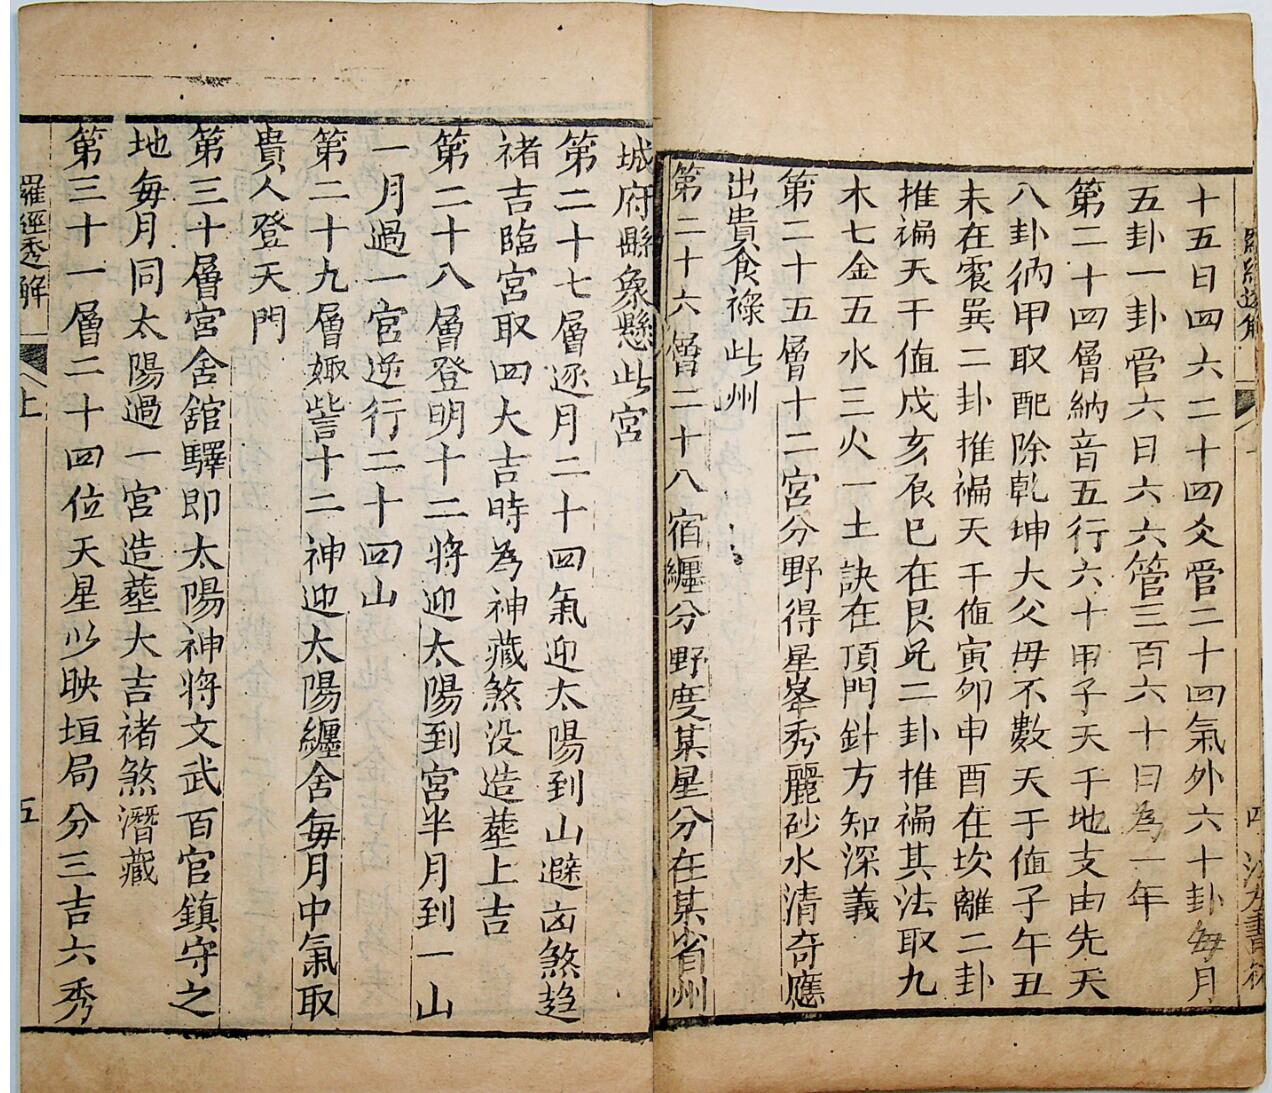 十五日四六二十四爻管二十四氣外六十卦每月
五卦一卦管六日六六管三百六十日為一年
第二十四層納音五行六十甲子天干地支由先天
八卦納甲取配除乾坤大父母不數天干值子午丑
未在震巽二卦推徧天干值寅卯申酉在坎離二卦
推徧天干值戌亥辰巳在艮兌二卦推徧其法取九
木七金五水三火一土訣在頂門針方知深義
第二十五層十二宮分野得星峯秀麗砂水清奇應
出貴食祿此州
第二十六層二十八宿纏分野度某星分在某省州
城府縣象懸此宮
第二十七層逐月二十四氣迎太陽到山避凶煞趋
禇吉臨宮取四大吉時為神藏煞没造塟上吉
第二十八層登明十二將迎太陽到宮半月到一山
一月過一宮逆行二十四山
第二十九層娵訾十二神迎太陽纏舍每月中氣取
貴人登天門
第三十層宮舍舘驛即太陽神將文武百官鎮守之
地每月同太陽過一宮造塟大吉禇煞潛藏
第三十一層二十四位天星以映垣局分三吉六秀
羅經秀解 上 五